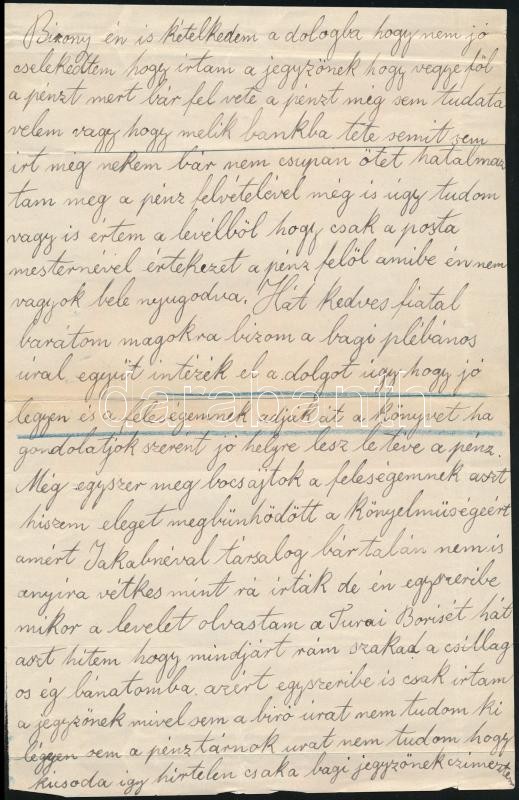 Bizony én is kételkedem a dologba hogy nem jó
cselekedtem hogy irtam a jegyzőnek hogy vegye föl
a pénzt mert bár fel vete a pénzt még sem tudata
velem vagy hogy melik bankba tete semit sem
irt még nekem bár nem csupan ötet hatalmaz
tam meg a pénz felvételével még is úgy tudom
vagy is értem a levélből hogy csak a posta
mesternével értekezet a pénz felöl amibe én nem
vagyok bele nyugodva. Hát kedves fiatal
barátom magokra bizom a bagi plébános
úral együt intézék el a dolgot úgy hogy jó
legyen és a feleségemnek adják át a könyvet ha
gondolatjok szerent jó helyre lesz le téve a pénz.
Még egyszer meg bocsajtok a feleségemnek aszt
hiszem eleget megbünhödött a könyelmüségeért
amért Jakabnéval társalog bár talán nem is
anyira vétkes mint rá irták de én egyszeribe
mikor a levelet olvastam a Turai Borisét hát
aszt hitem hogy mindjárt rám szakad a csillag
os ég bánatomba, azért egyszeribe is csak irtam
a jegyzőnek mivel sem a biró úrat nem tudom ki
légyen sem a pénztárnok urat nem tudom hogy
kicsoda igy hirtelen csak a bagi jegyzőnek czimeztem
darabanth